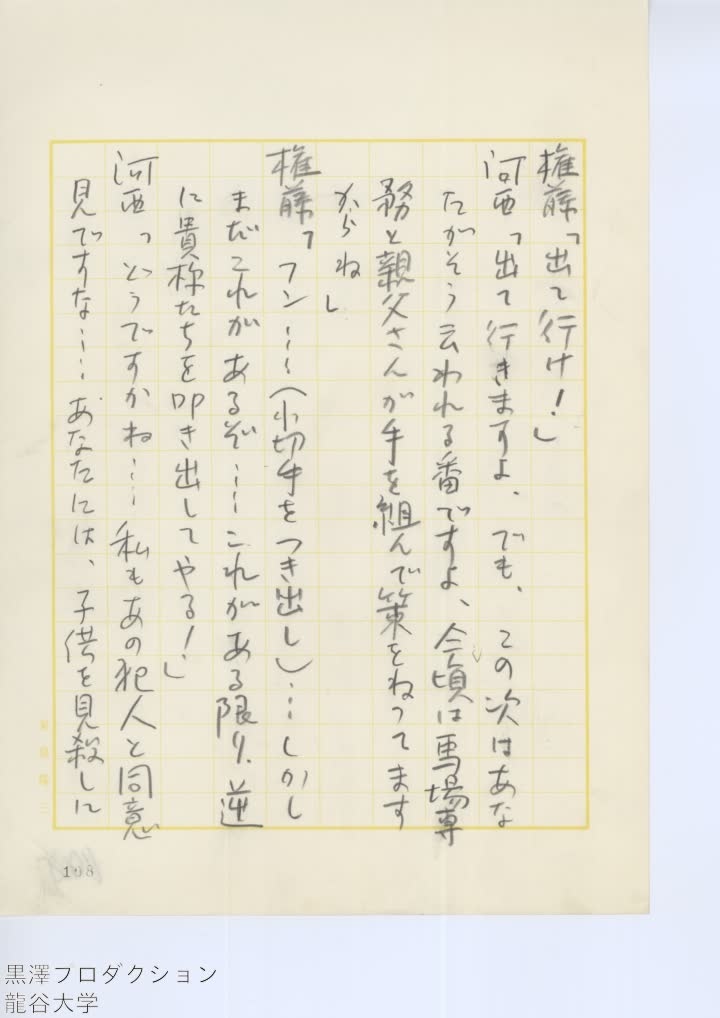 権藤「出て行け！」
河西「出て行きますよ、でも、この次はあな
たがそう云われる番ですよ、今頃は馬場専
務と親父さんが手を組んで策をねってます
からね」
権藤「フン……（小切手をつき出し）…しかし
まだこれがあるぞ……これがある限り、逆
に貴様たちを叩き出してやる！」
河西「どうですかね……私もあの犯人と同意
見ですな……あなたには、子供を見殺しに
108
黒澤プロダクション
龍谷大学